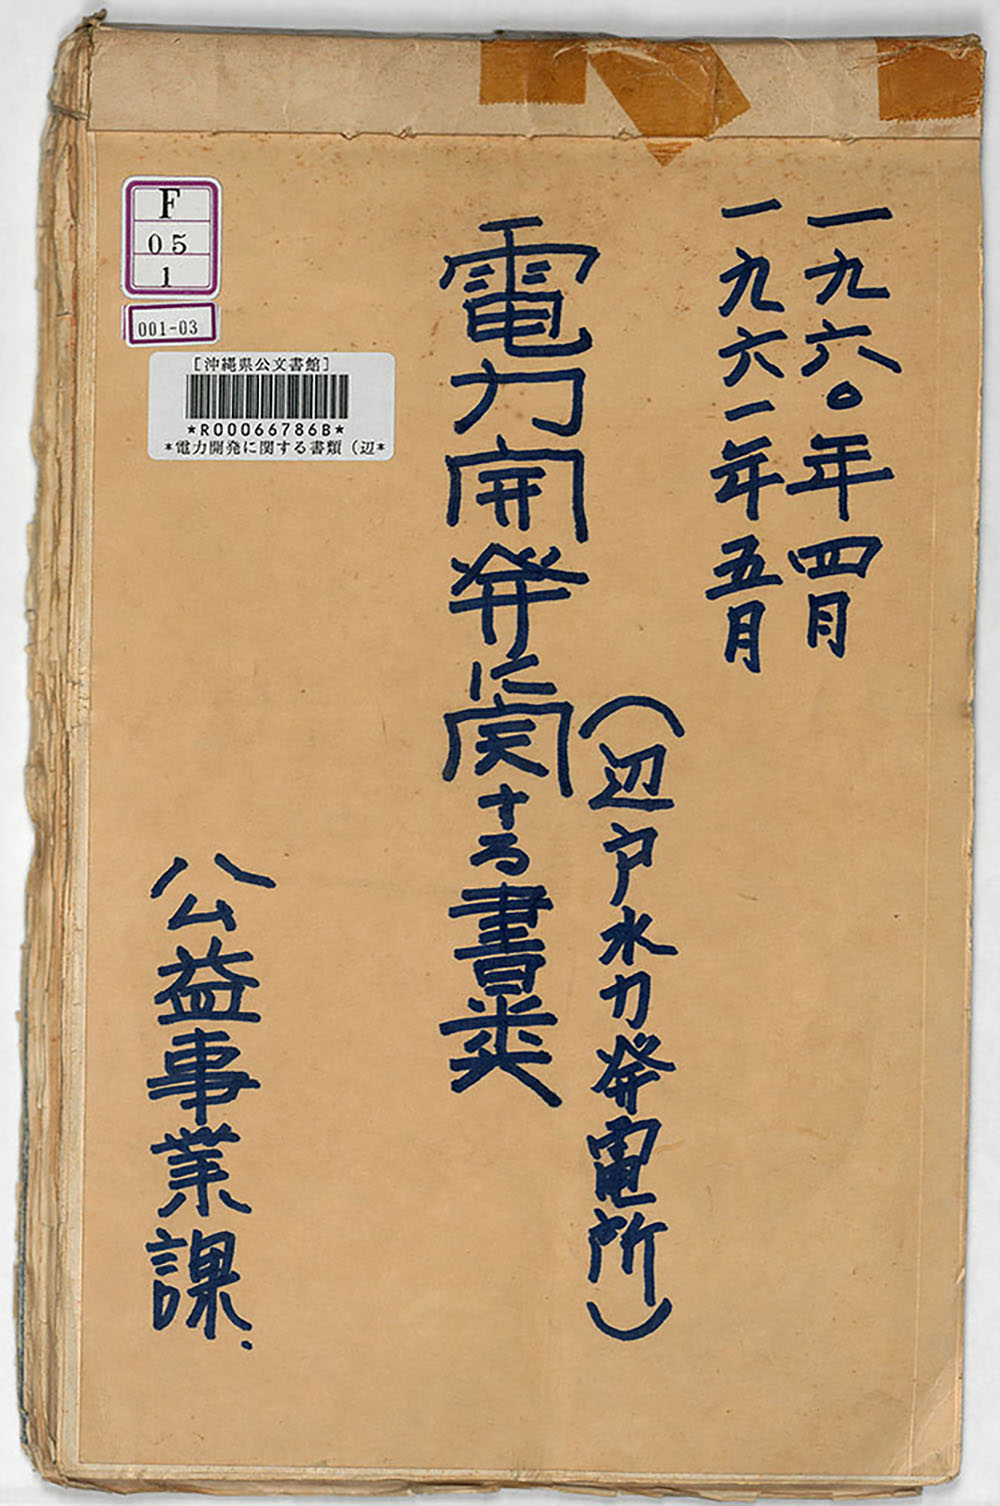 一九六〇年四月
一九六一年五月
(辺戸水力発電所)
電力開発に関する書類
公益事業課.
F
05
1
001-03
[沖縄県公文書館]
*R00066786B*
*電力開発に関する書類(辺*